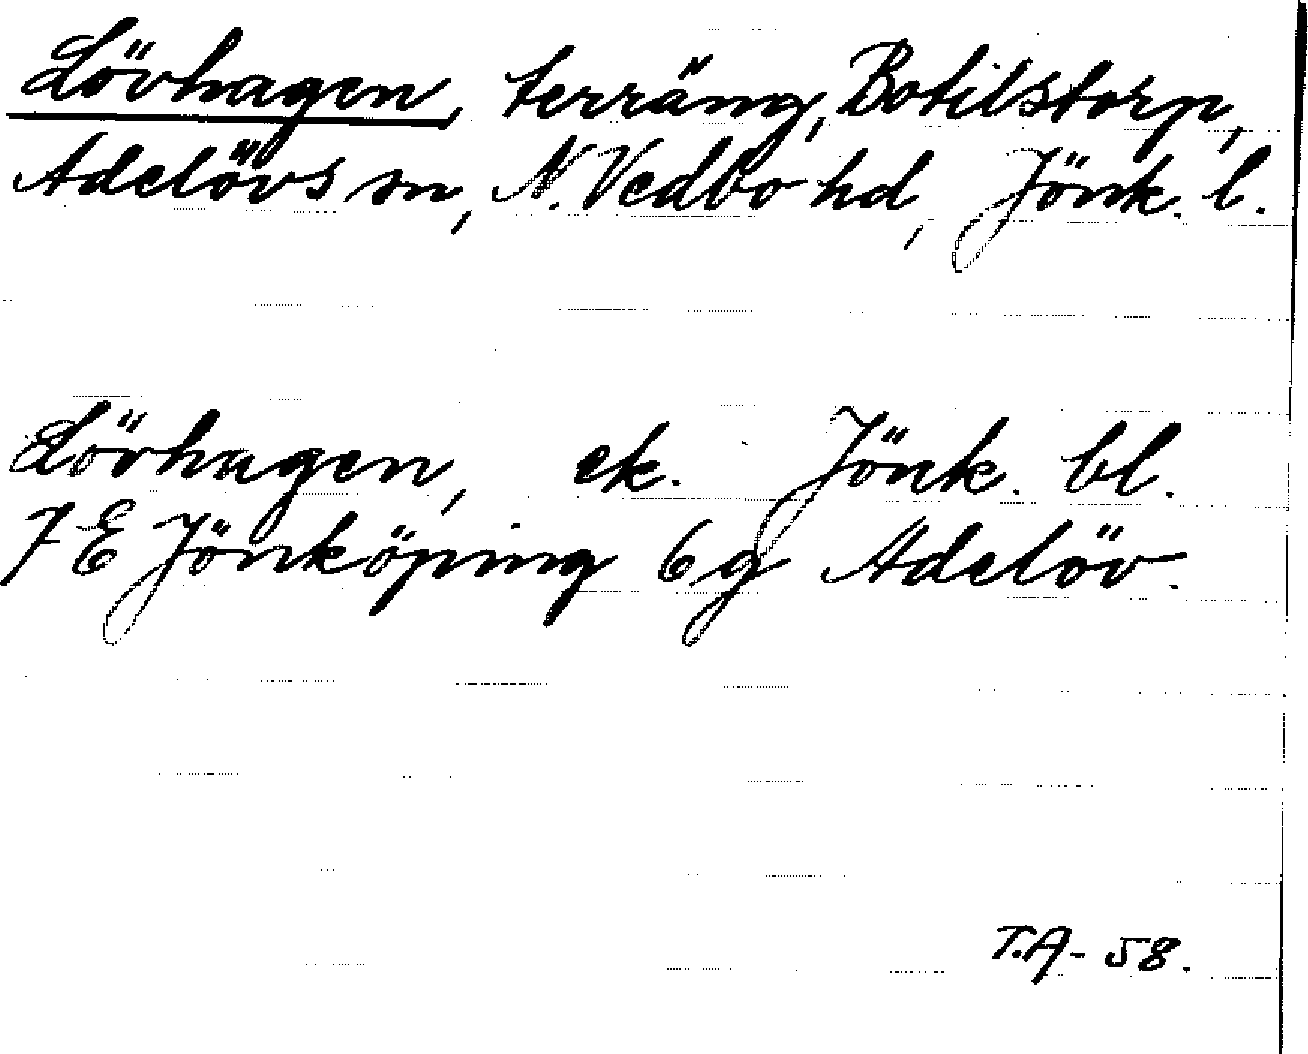 Lövhagen, terräng, Botilstorp,
Adelövs sn, N. Vedbo hd, Jönk. l.
Lövhagen, ek. Jönk. bl.
7 E Jönköping 6g Adelöv.
T.A- 58.